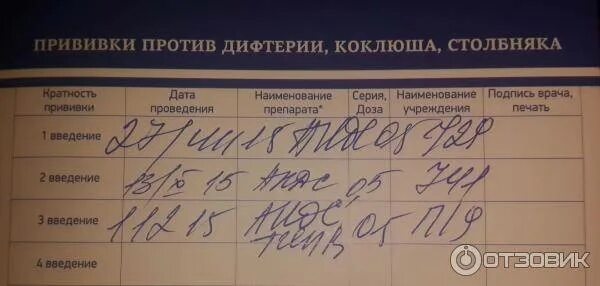 ПРИВИВКИ ПРОТИВ ДИФТЕРИИ, КОКЛЮША, СТОЛБНЯКА
Кратность прививки Дата проведения Наименование препарата* Серия, Доза Наименование учреждения Подпись врача, печать
1 введение 27/VIII 15 АКДС 05
2 введение 13/X 15 АКДС 05 У41
3 введение 112 15 АКДС 05 П/Ф
4 введение
ОТЗОВИК